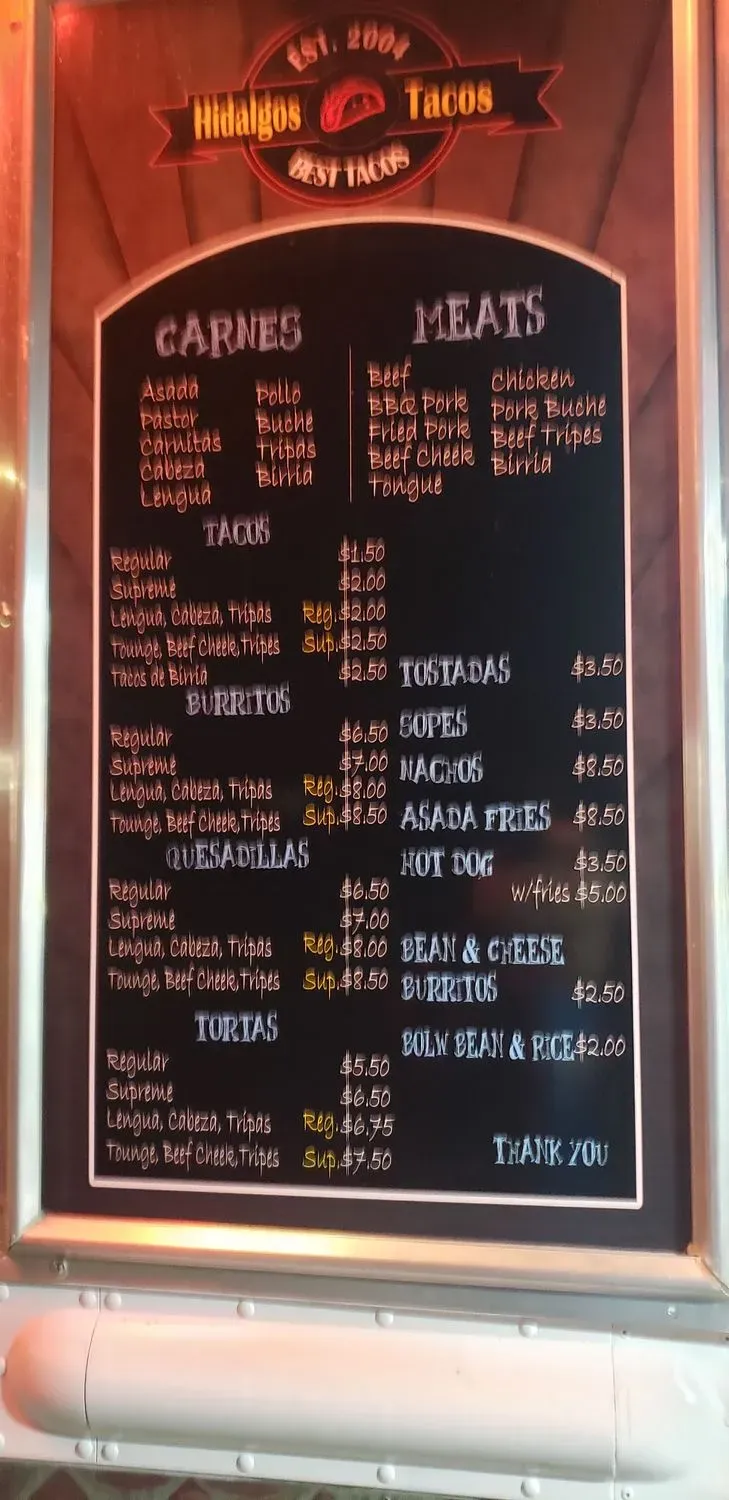 EST. 2004
Hidalgos Tacos
BEST TACOS
CARNES
Asada
Pastor
Carnitas
Cabeza
Lengua
Pollo
Buche
Tripas
Birria
MEATS
Beef
BBQ Pork
Fried Pork
Beef Cheek
Tongue
Chicken
Pork Buche
Beef Tripes
Birria
TACOS
Regular $1.50
Supreme $2.00
Lengua, Cabeza, Tripas Reg. $2.00
Tounge, Beef Cheek, Tripes Sup. $2.50
Tacos de Birria $2.50
BURRITOS
Regular $6.50
Supreme $7.00
Lengua, Cabeza, Tripas Reg. $8.00
Tounge, Beef Cheek, Tripes Sup. $8.50
QUESADILLAS
Regular $6.50
Supreme $7.00
Lengua, Cabeza, Tripas Reg. $8.00
Tounge, Beef Cheek, Tripes Sup. $8.50
TORTAS
Regular $5.50
Supreme $6.50
Lengua, Cabeza, Tripas Reg. $6.75
Tounge, Beef Cheek, Tripes Sup. $7.50
TOSTADAS $3.50
SOPES $3.50
NACHOS $8.50
ASADA FRIES $8.50
HOT DOG $3.50
w/fries $5.00
BEAN & CHEESE
BURRITOS $2.50
BOLW BEAN & RICE $2.00
THANK YOU